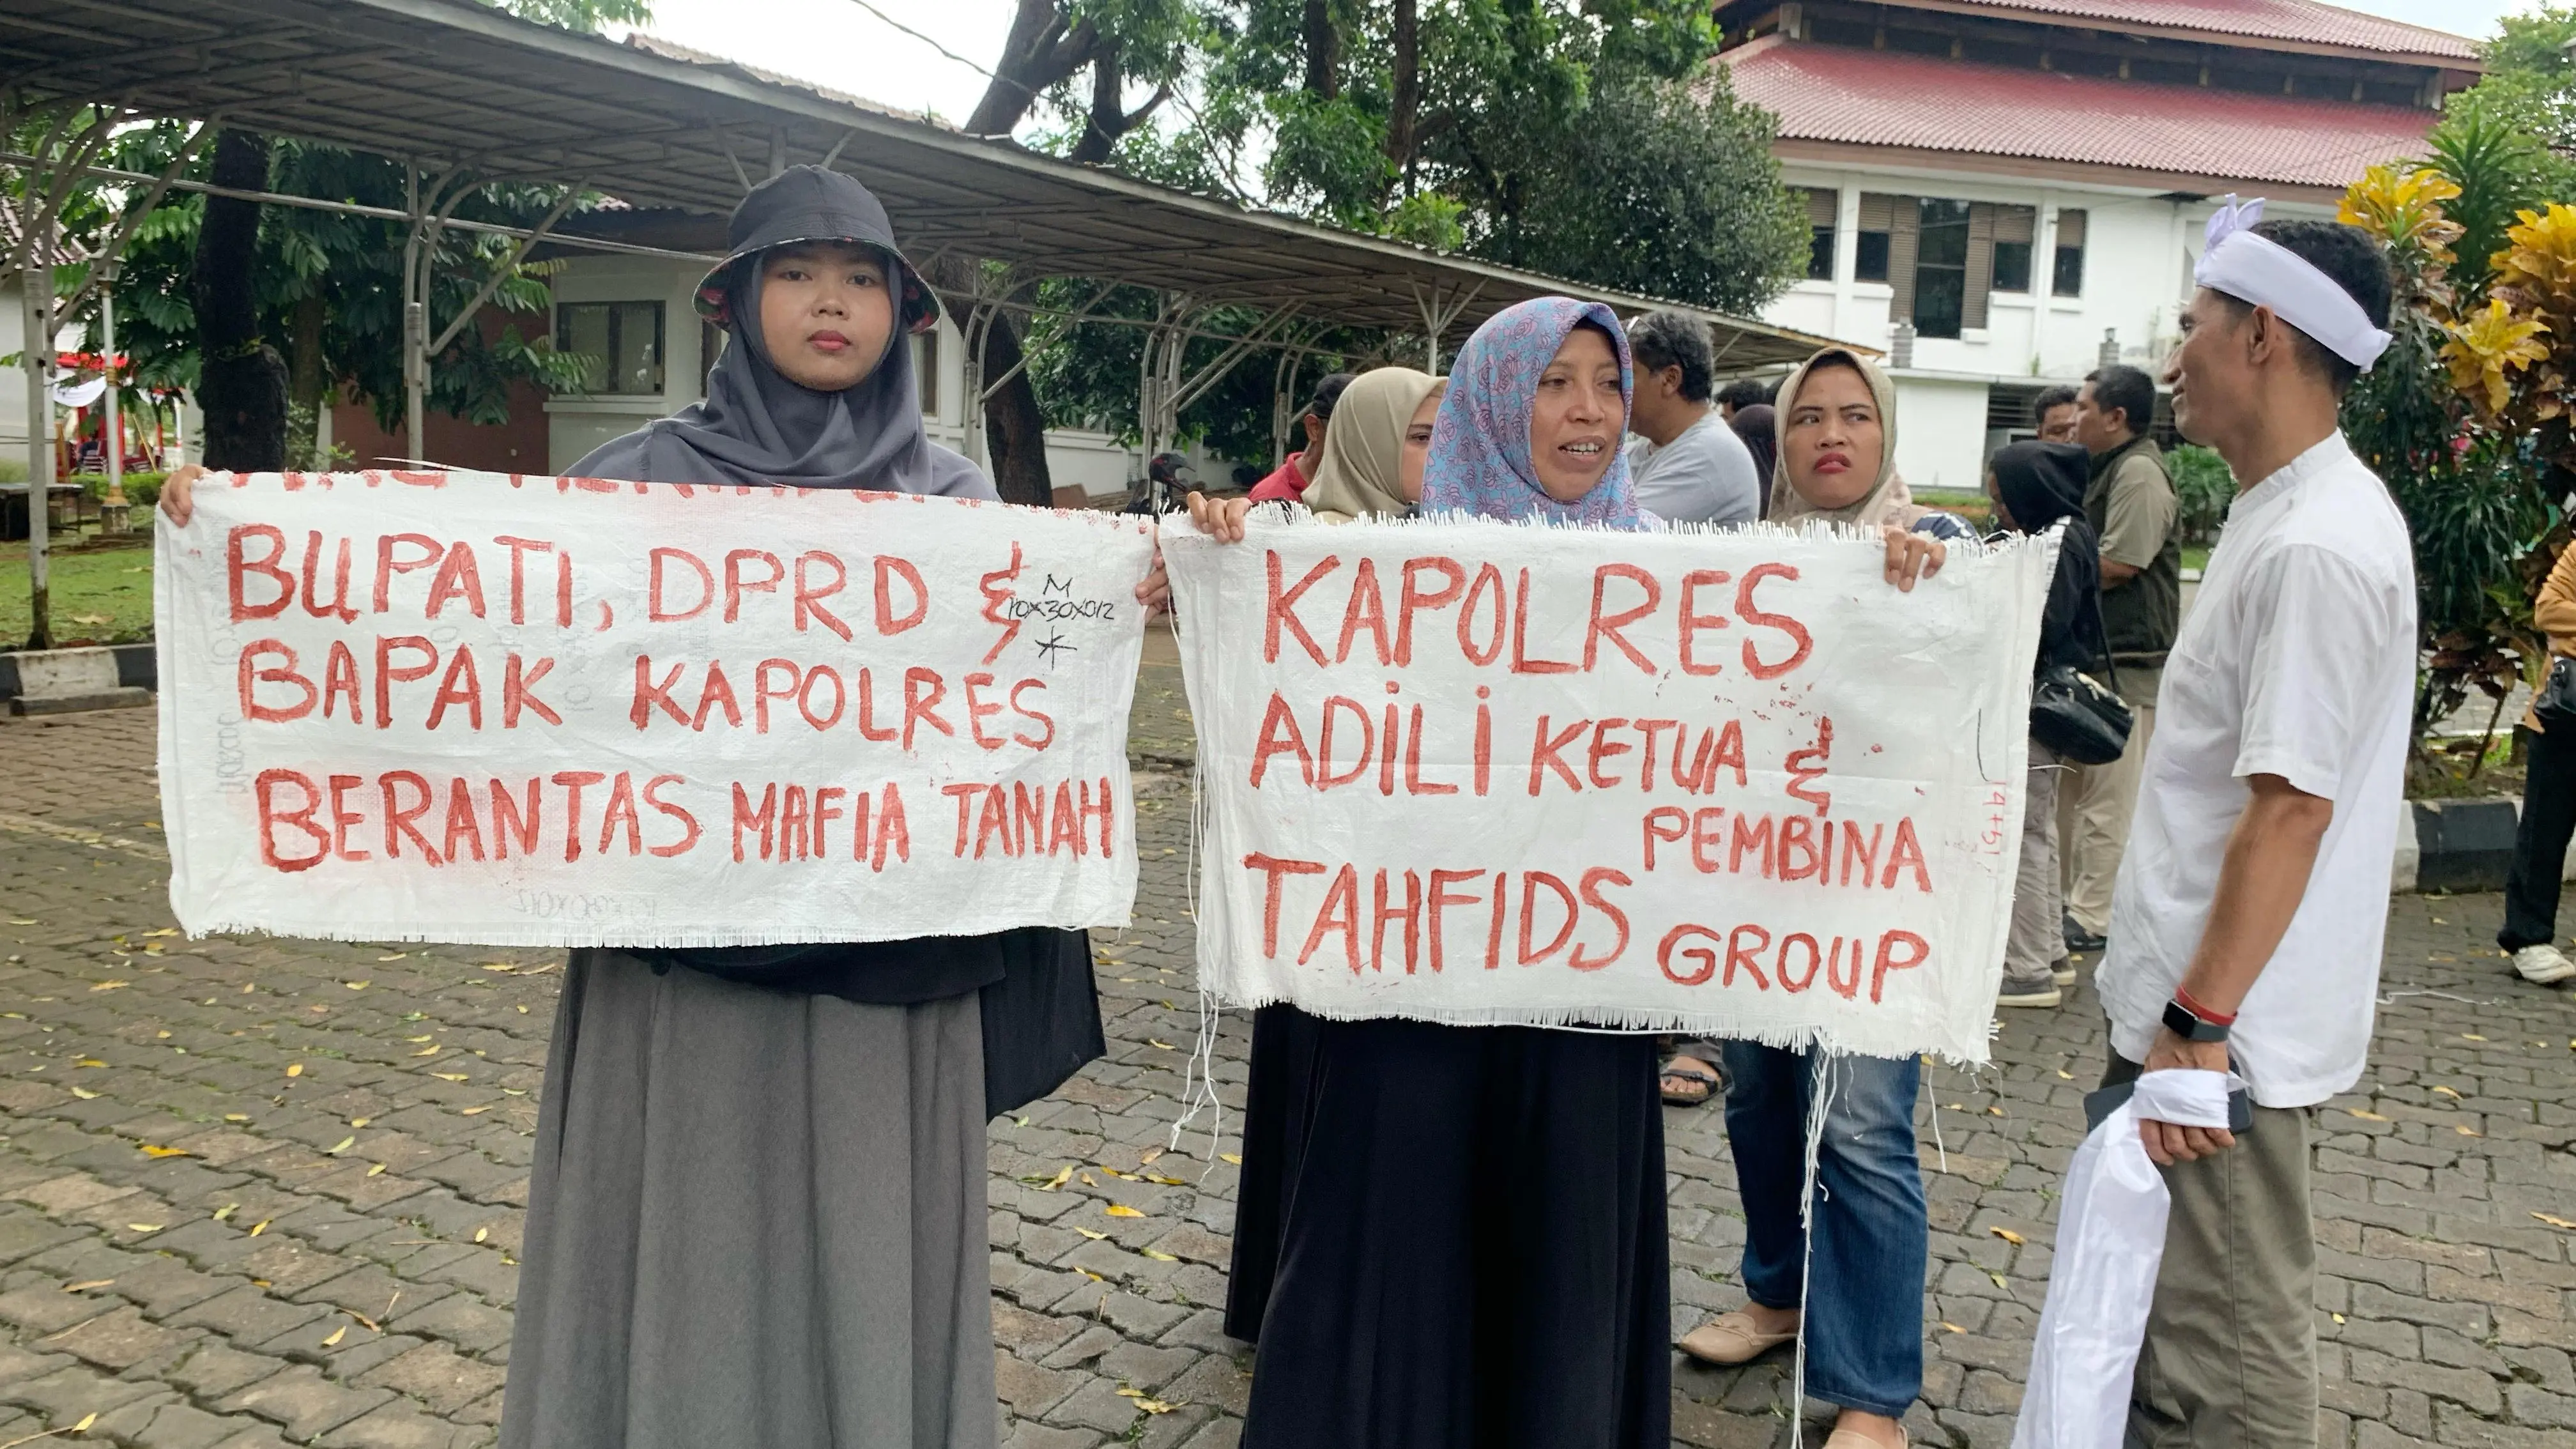 BUPATI, DPRD &
M
10x30x012
BAPAK KAPOLRES
BERANTAS MAFIA TANAH
KAPOLRES
ADILI KETUA &
PEMBINA
TAHFIDS GROUP